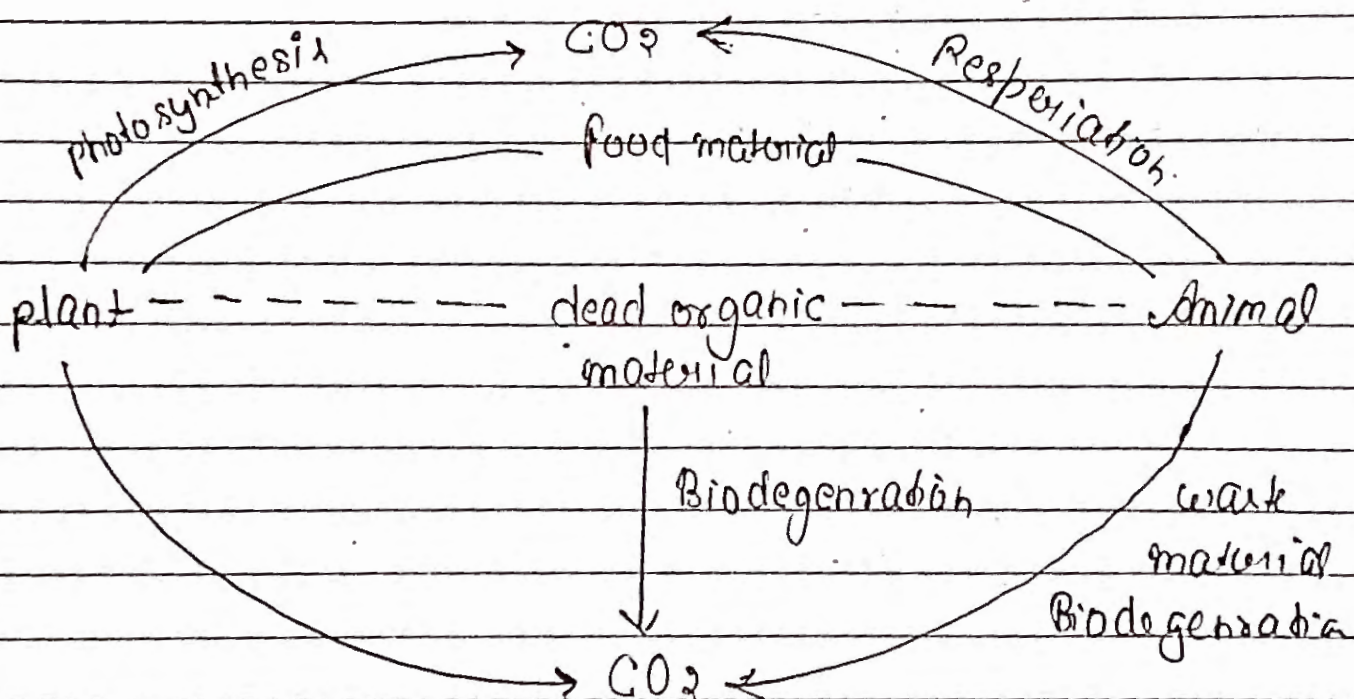 CO2
photosynthesis
Resperiation
food material
plant
dead organic
material
Animal
Biodegenration
waste
material
Biodegenration
CO2